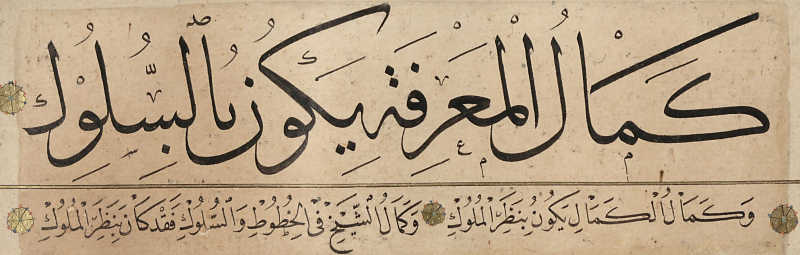 كمال المعرفة يكون بالسلوك
وكمال الكمال يكون بنظر الملوك وكمال الشيخ في الخطوط والسلوك فقد كان بنظر الملوك